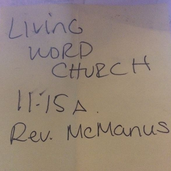 LIVING
WORD
CHURCH
11:15 A.
Rev. McMANUS